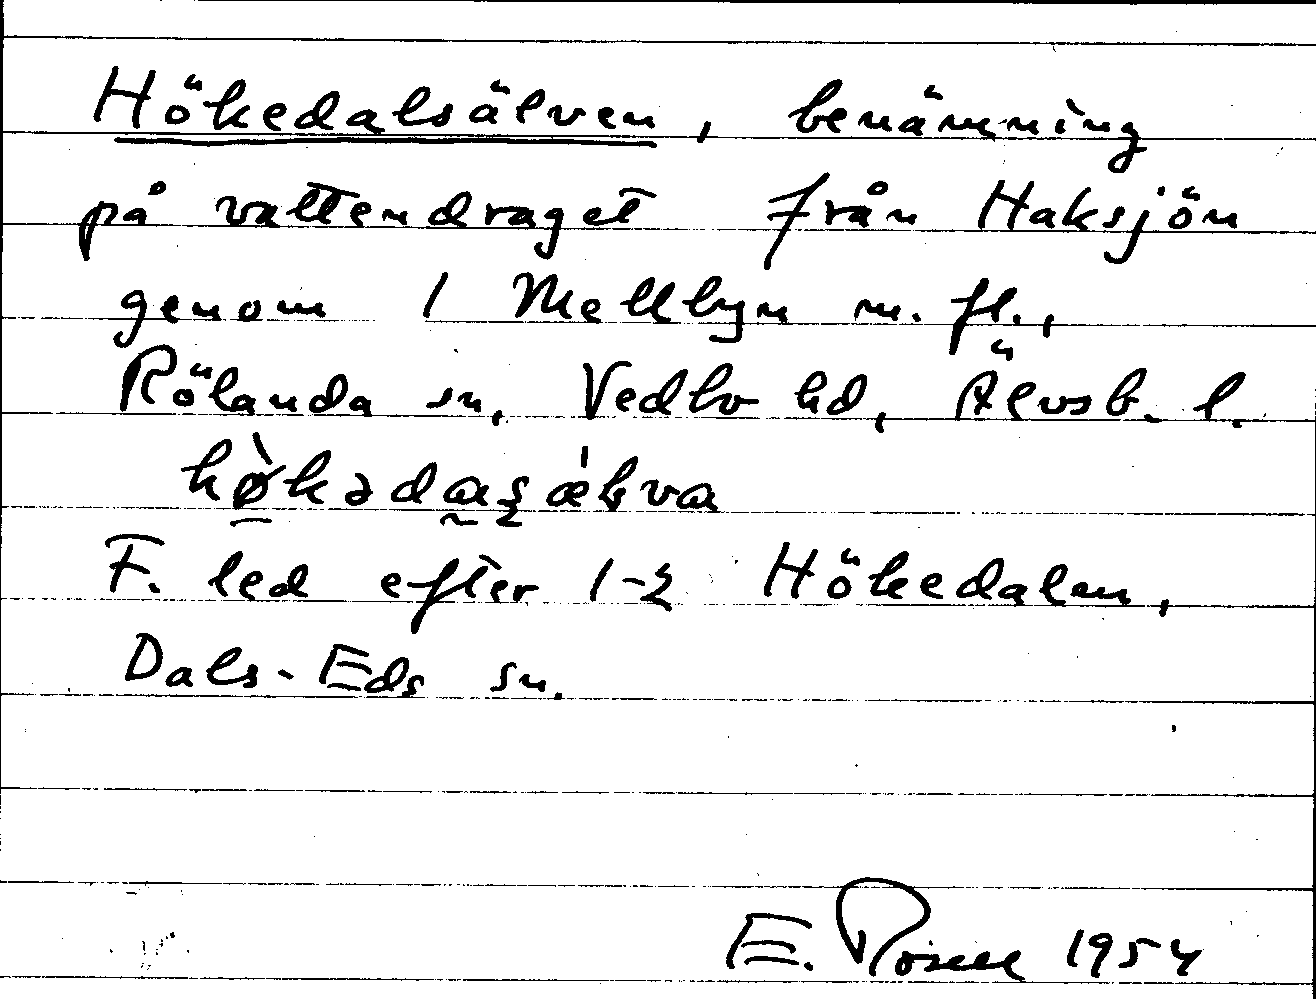 Hökedalsälven, benämning
på vattendraget från Haksjön
genom 1 Mellbyn m. fl.,
Rölanda sn, Vedbo hd, Älvsb. l.
hø̀kədaʂæ̍ɫva
F. led efter 1-2 Hökedalen,
Dals-Eds sn.
E. Rosell 1954